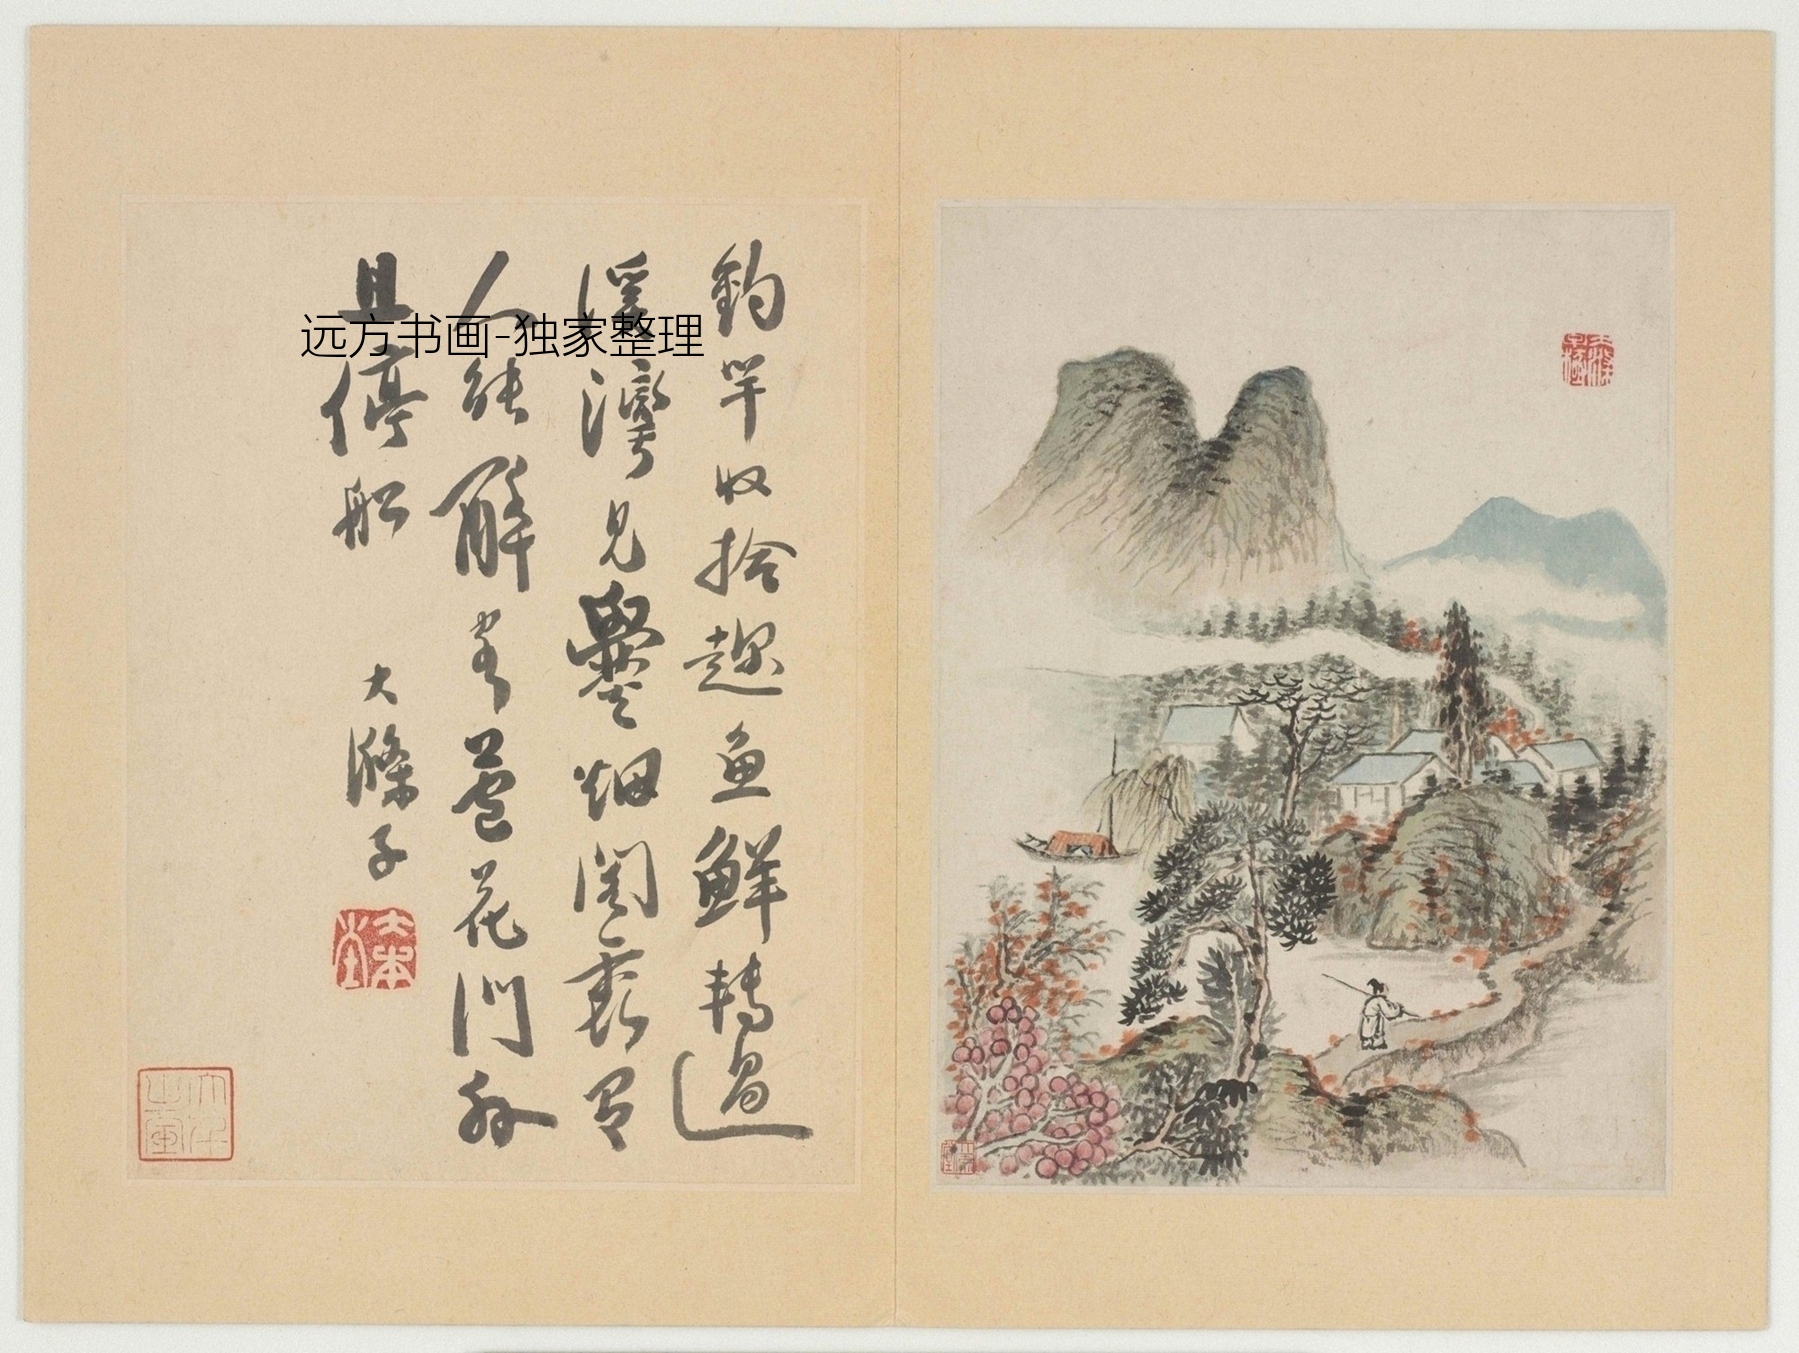 远方书画-独家整理
釣竿收拾趂魚鮮轉過
溪灣見爨烟閨裏有
人能解蘆花門外
且停船
大滌子
大本堂